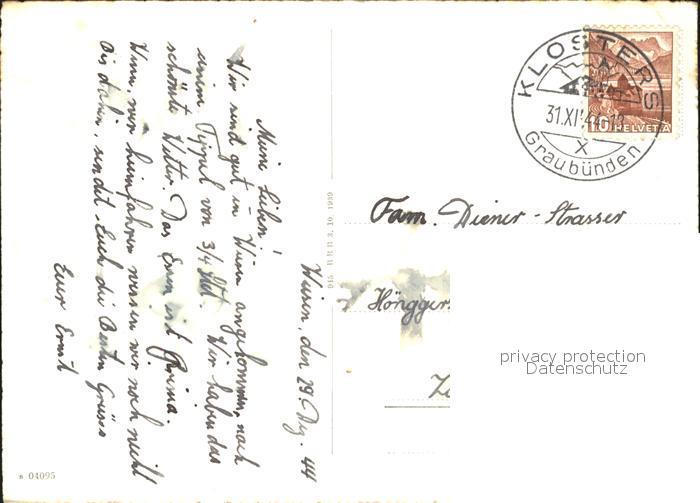 Wiesen, den 29. Dez. 44
Meine Lieben!
Wir sind gut in Wiesen angekommen, nach
einem Tippel von 3/4 Std. Wir haben das
schönste Wetter. Das Essen ist Prima.
Wann, wir heimfahren wissen wir noch nicht
Bis dahin, sendet Euch die Besten Grüsse
Euer Ernst
KLOSTERS
31.XI 44-12
X
Graubünden
10 HELVETIA
Fam. Diener-Strasser
Höngger
privacy protection
Datenschutz
3. 10. 1939
04095